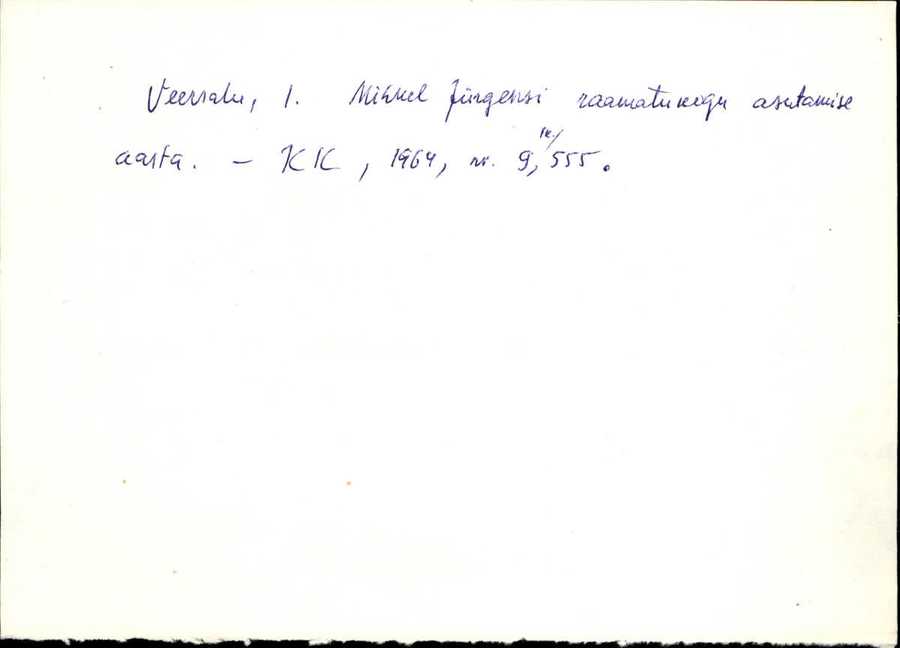 Veersalu, I. Mihkel Jürgensi raamatukogu asutamise
aasta. – KK, 1964, nr. 9, lk. 555.